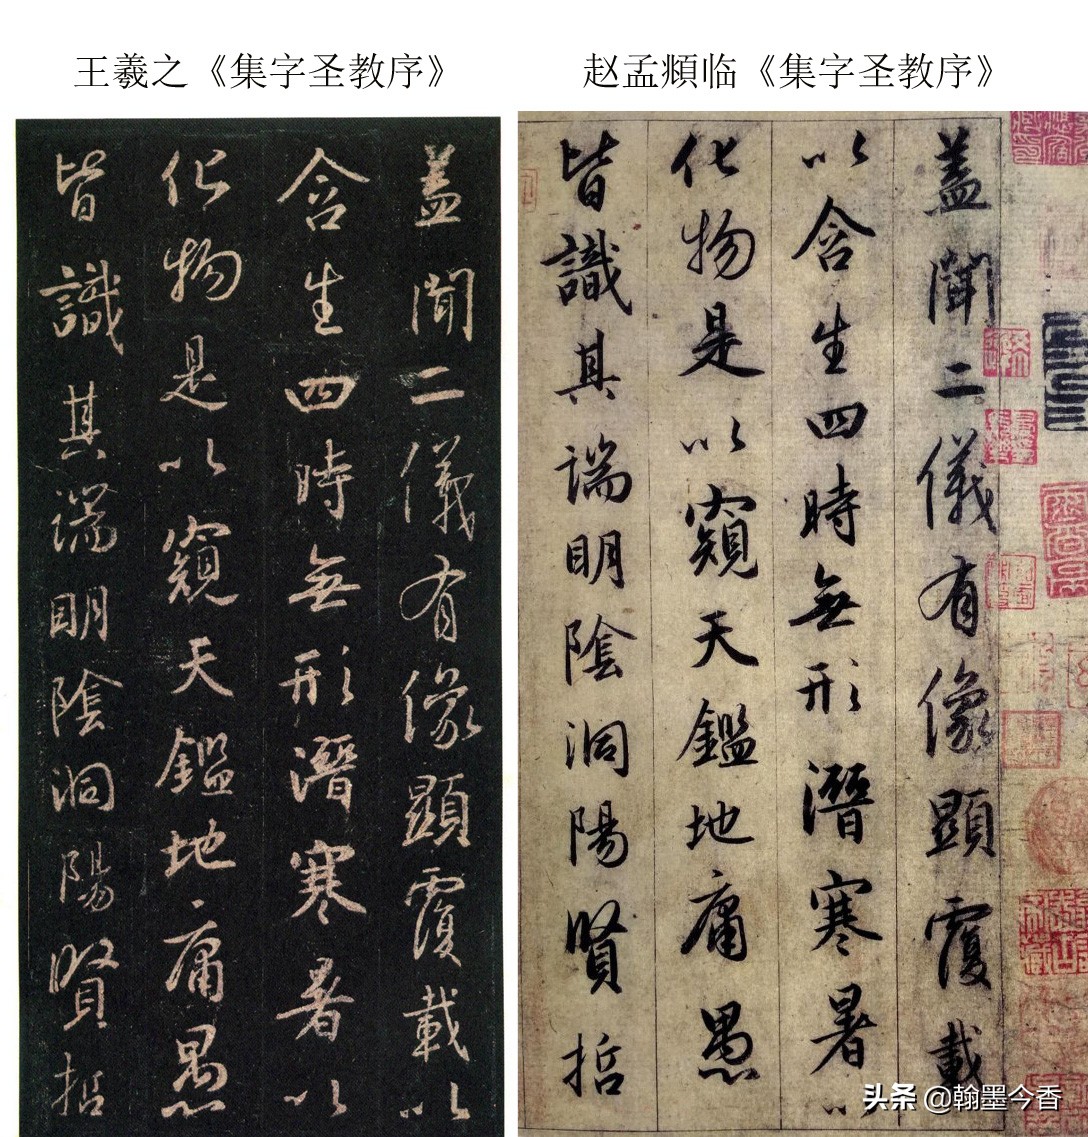 王羲之《集字圣教序》
蓋聞二儀有像顯覆載以
含生四時無形潛寒暑以
化物是以窺天鑑地庸愚
皆識其端明陰洞陽賢哲
赵孟頫临《集字圣教序》
蓋聞二儀有像顯覆載
以含生四時無形潛寒暑以
化物是以窺天鑑地庸愚
皆識其端明陰洞陽賢哲
头条 @翰墨今香